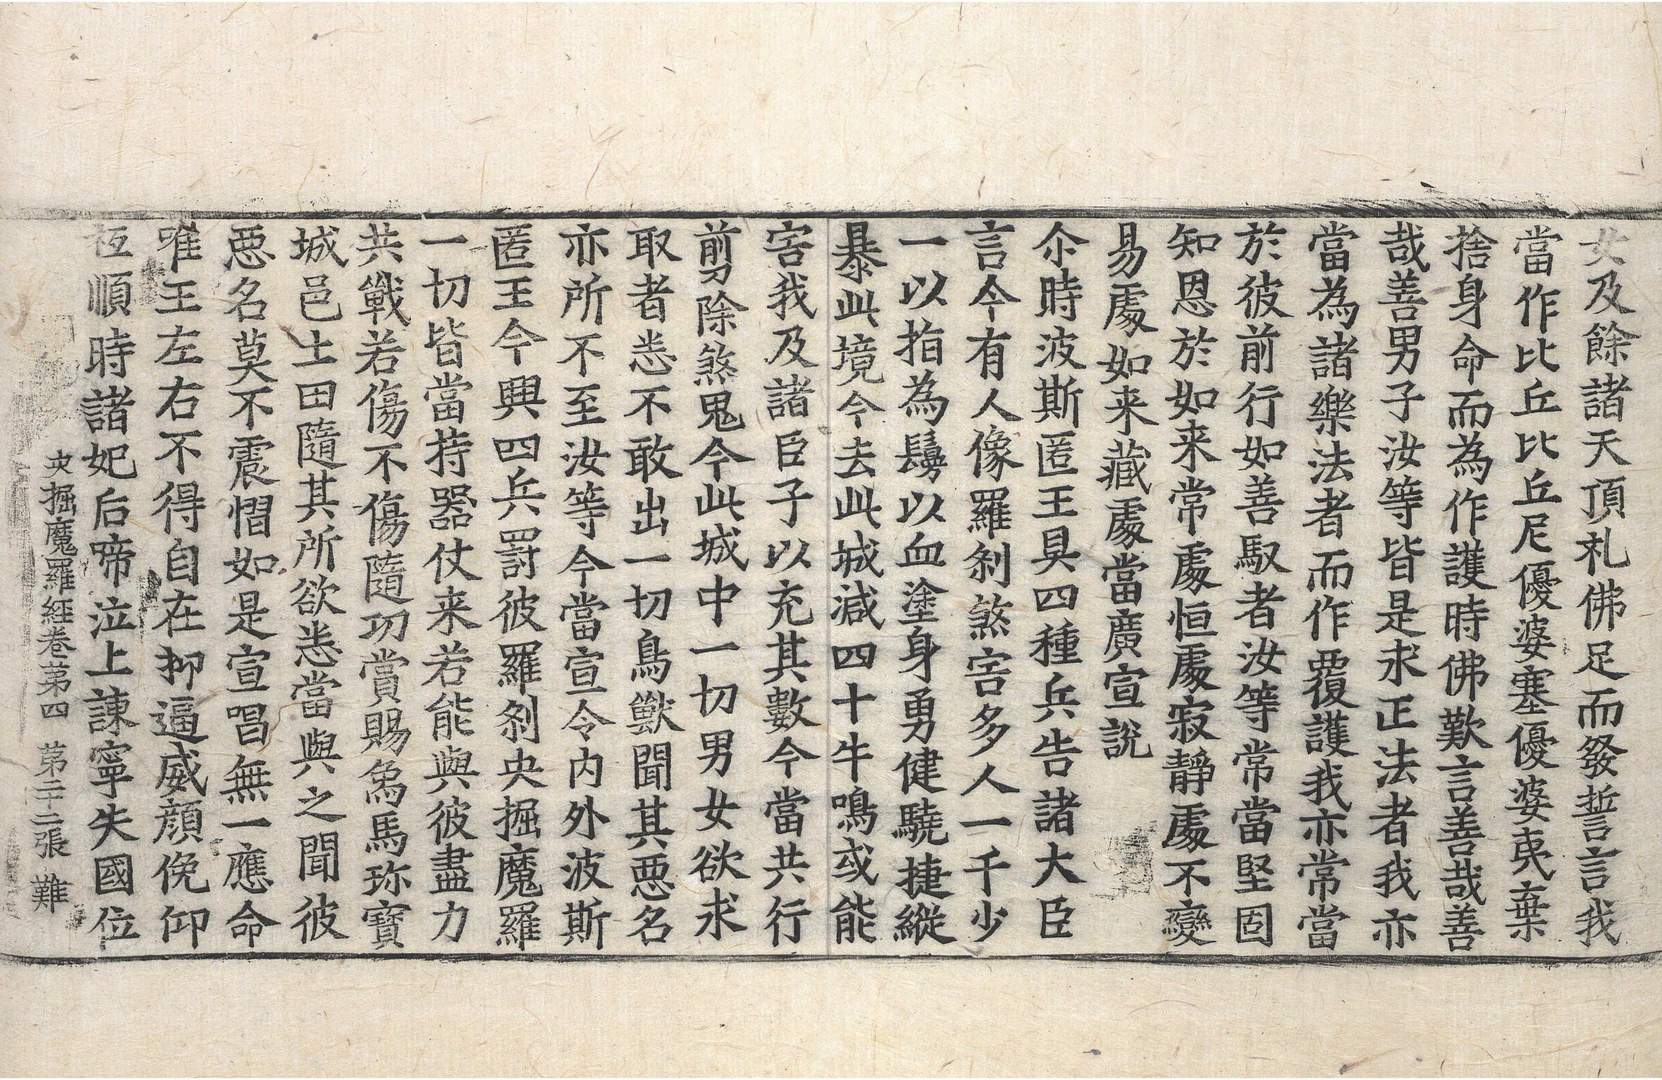 女及餘諸天頂礼佛足而發誓言我
當作比丘比丘尼優婆塞優婆夷棄
捨身命而為作護時佛歎言善哉善
哉善男子汝等皆是求正法者我亦
當為諸樂法者而作覆護我亦常當
於彼前行如善馭者汝等常當堅固
知恩於如来常處恒處寂靜處不變
易處如来藏處當廣宣說
尒時波斯匿王具四種兵告諸大臣
言今有人像羅剎煞害多人一千少
一以指為鬘以血塗身勇健驍捷縱
暴此境今去此城減四十牛鳴或能
害我及諸臣子以充其數今當共行
剪除煞鬼今此城中一切男女欲求
取者悉不敢出一切鳥獸聞其惡名
亦所不至汝等今當宣令内外波斯
匿王今興四兵罰彼羅剎央掘魔羅
一切皆當持器仗来若能與彼盡力
共戰若傷不傷隨功賞賜象馬珎寶
城邑土田隨其所欲悉當與之聞彼
惡名莫不震慴如是宣唱無一應命
唯王左右不得自在抑逼威顔俛仰
祗順時諸妃后啼泣上諫寧失國位
央掘魔羅經卷苐四 苐二十二張 難